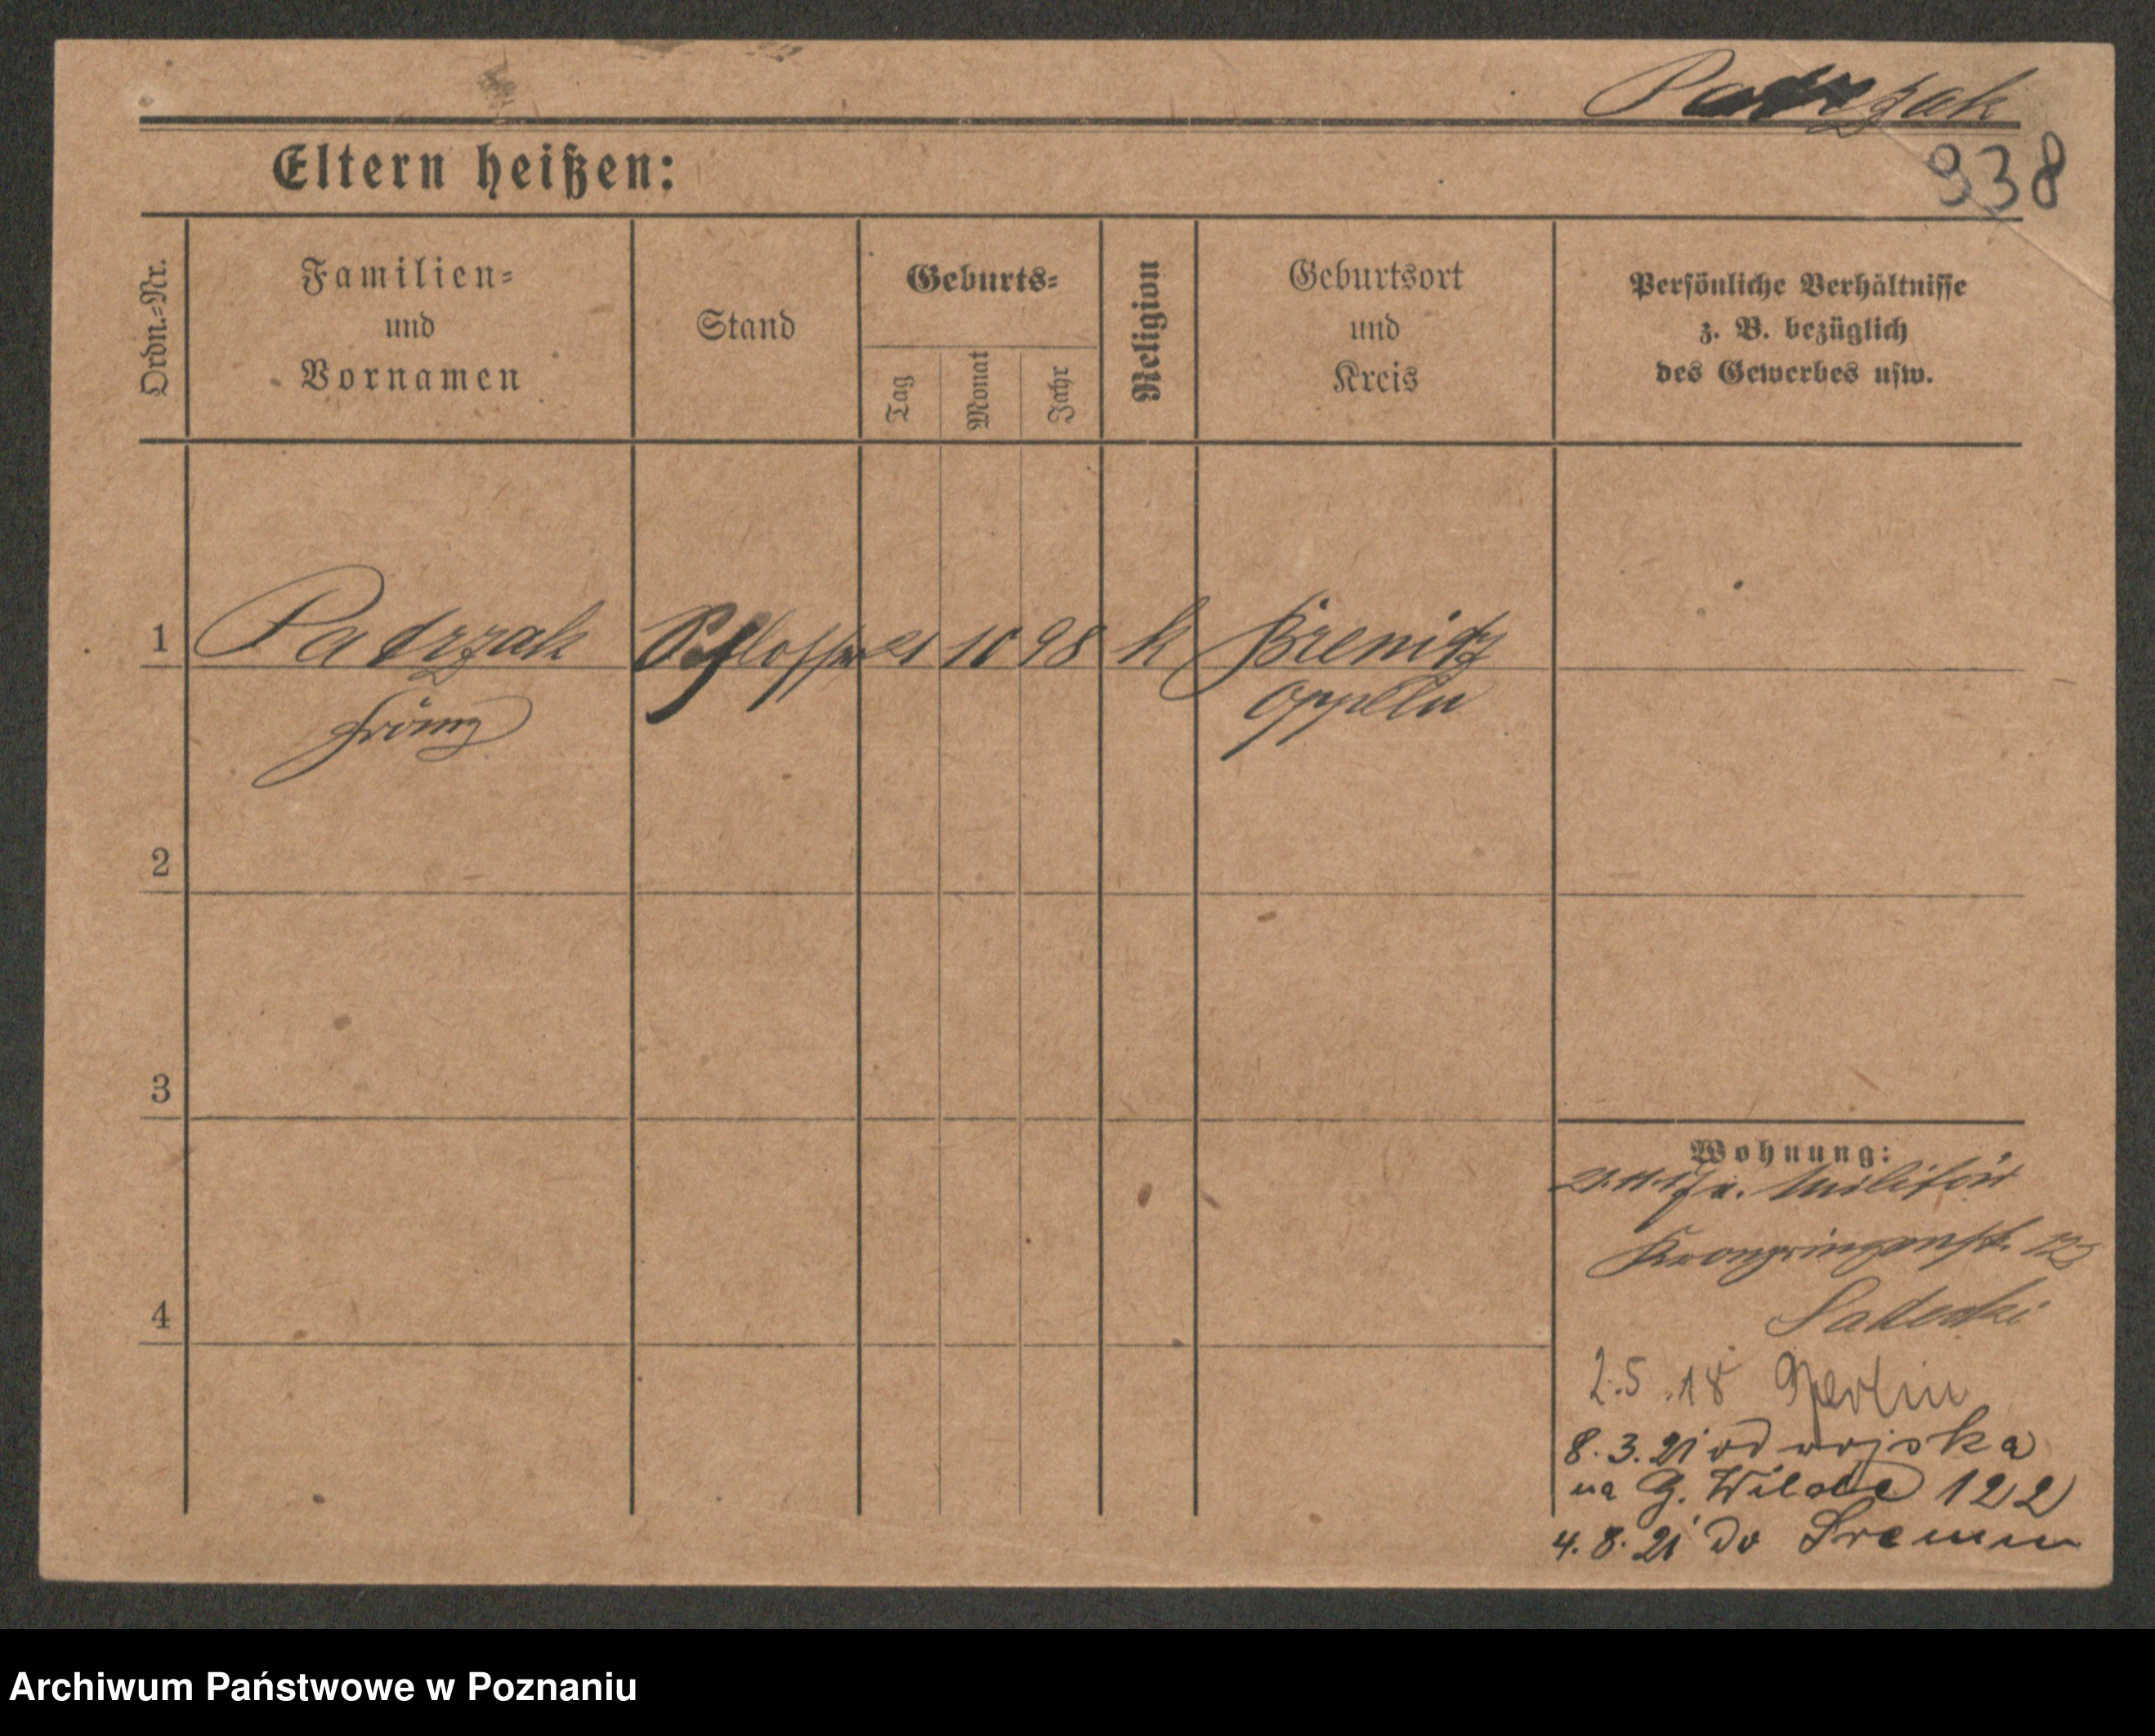 Patrzak
938
Eltern heißen:
Ordn.-Nr.
Familien-
und
Vornamen
Stand
Geburts-
Tag
Monat
Jahr
Religion
Geburtsort
und
Kreis
Persönliche Verhältnisse
z. B. bezüglich
des Gewerbes usw.
1
Patrzak Schlosser 21 10 98 k
Franz Oppeln
2
3
4
Wohnung:
Militär
Kronprinzenst.
Sadecki
2.5.18 Berlin
8.3.21 od wojska
na G. Wilda 122
4.8.21 do Śremu
Archiwum Państwowe w Poznaniu